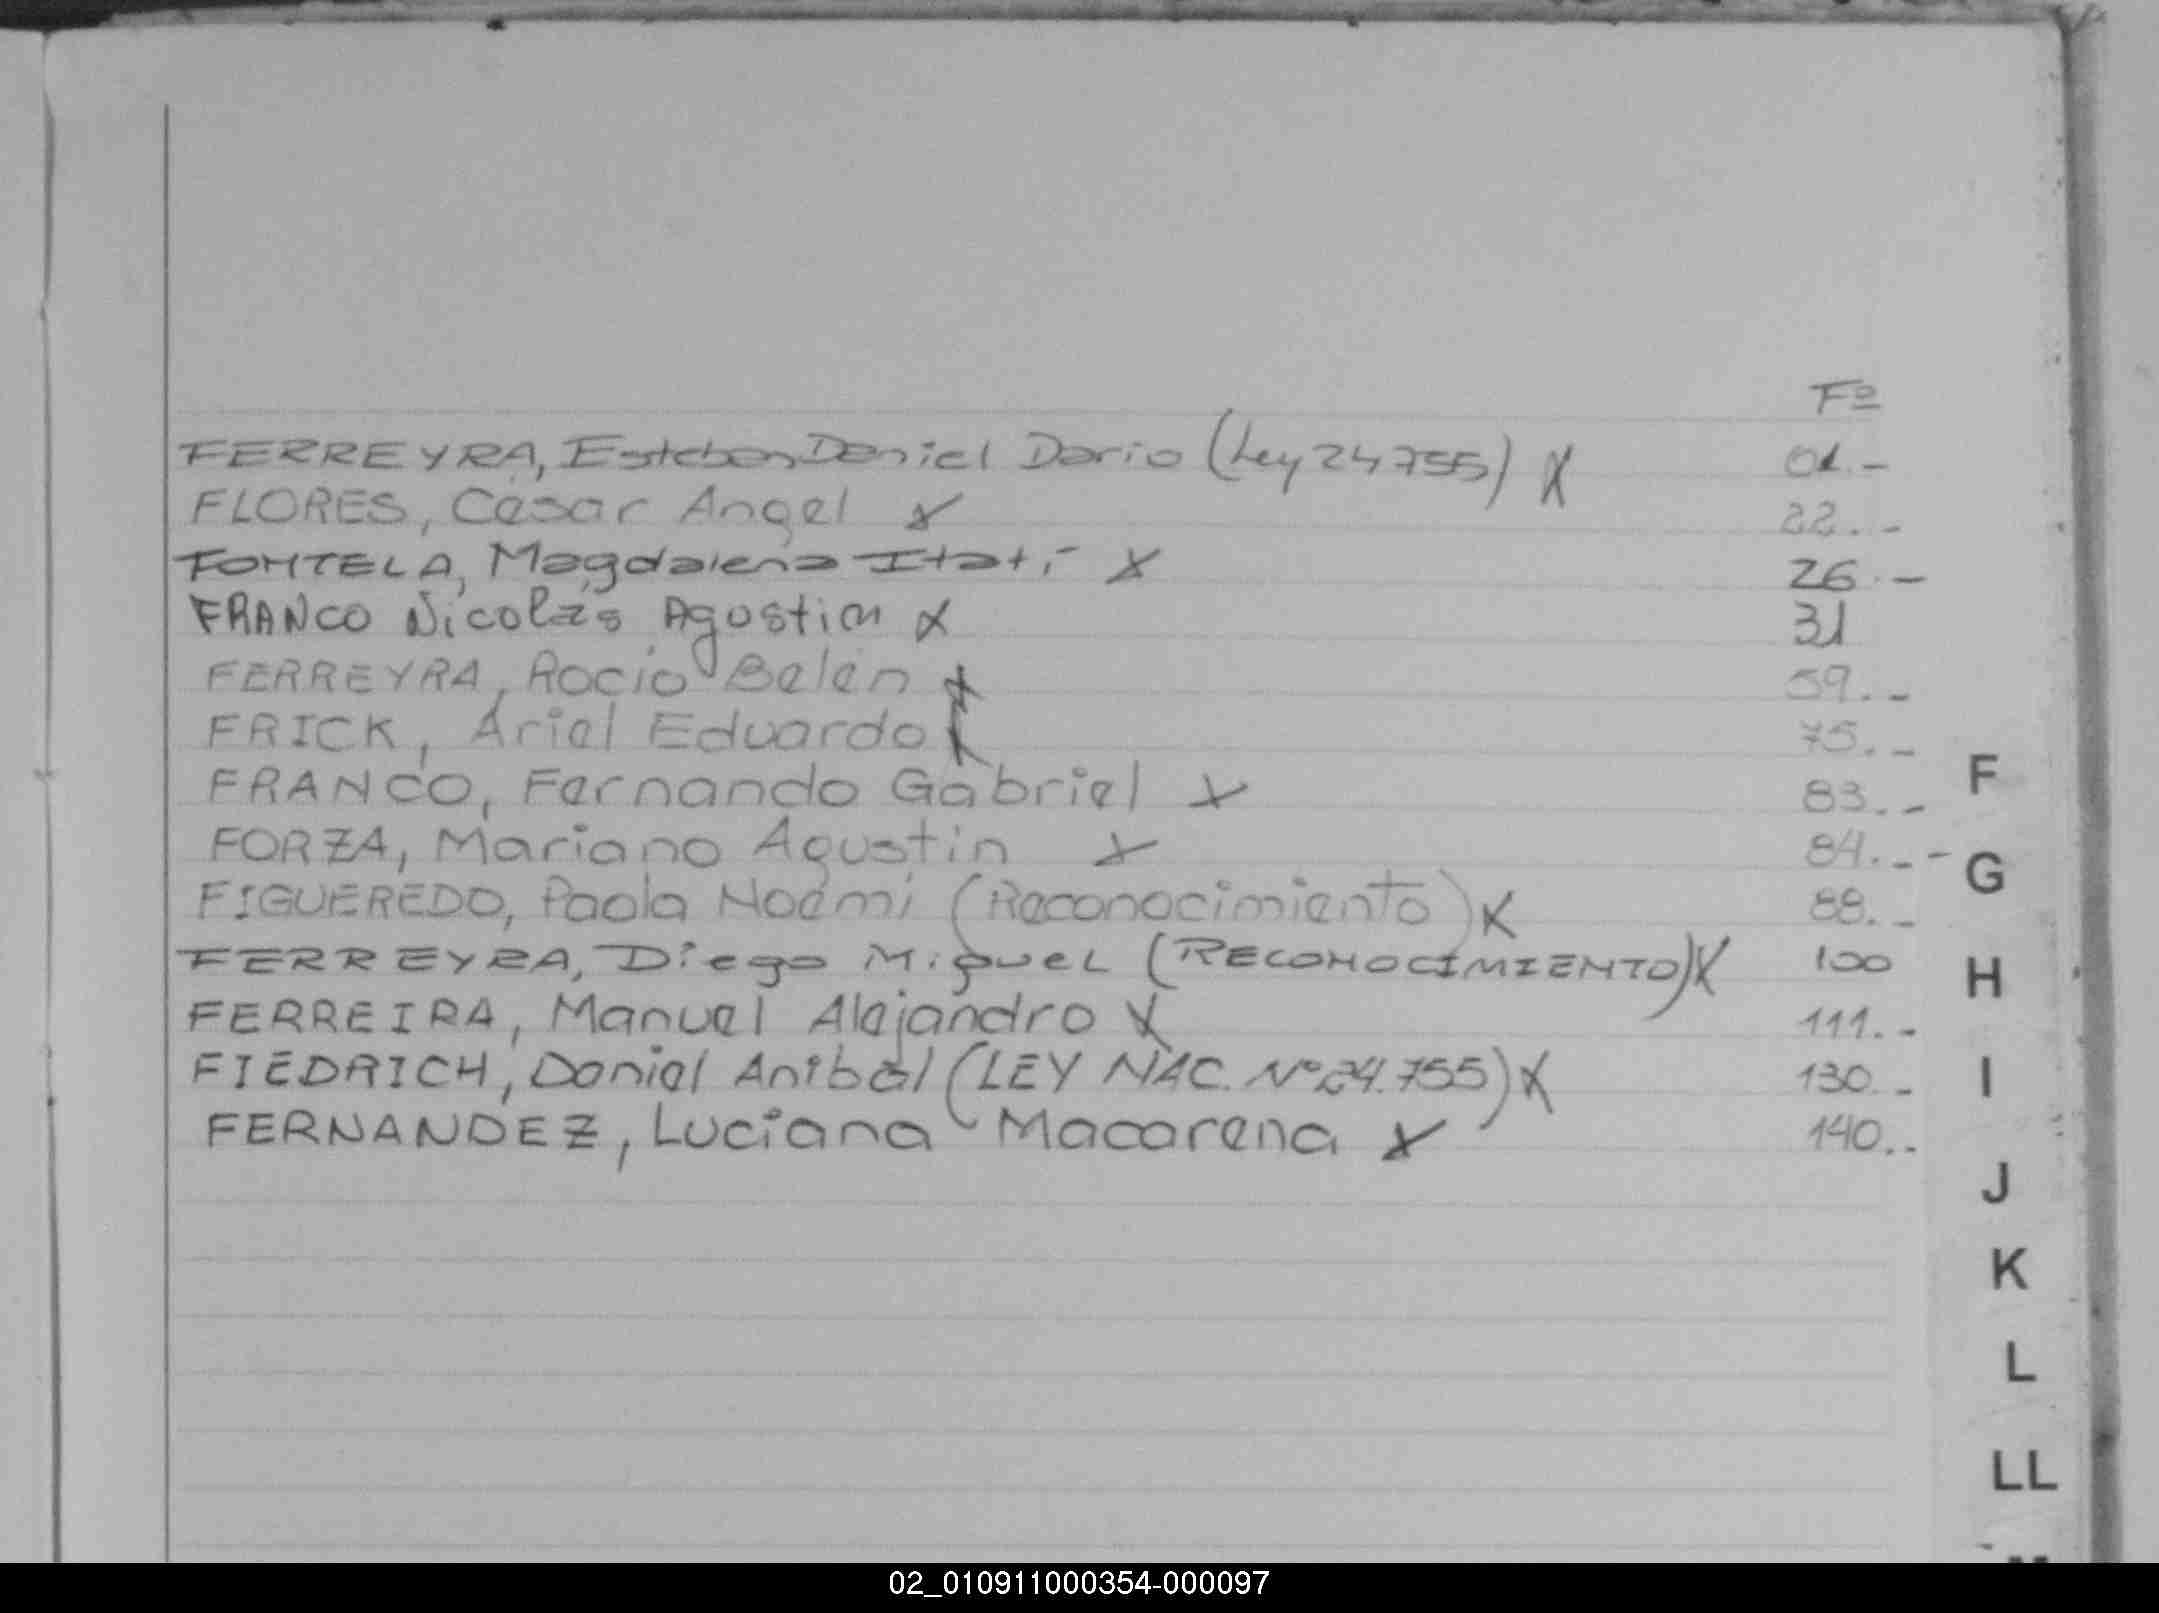 Fº
FERREYRA, Esteban Daniel Dario (Ley 24755) X 01.-
FLORES, César Angel X 22.-
FONTELA, Magdalena Itatí X 26.-
FRANCO Nicolás Agustin X 31
FERREYRA, Rocío Belén X 59.-
FRICK, Ariel Eduardo X 75.-
FRANCO, Fernando Gabriel X 83.-
F
FORZA, Mariano Agustín X 84.-
G
FIGUEREDO, Paola Noemí (Reconocimiento) X 88.-
FERREYRA, Diego Miguel (RECONOCIMIENTO) X 100
H
FERREIRA, Manuel Alejandro X 111.-
FIEDRICH, Daniel Anibal (LEY NAC. Nº 24.755) X 130.-
I
FERNANDEZ, Luciana Macarena X 140.-
J
K
L
LL
02_010911000354-000097